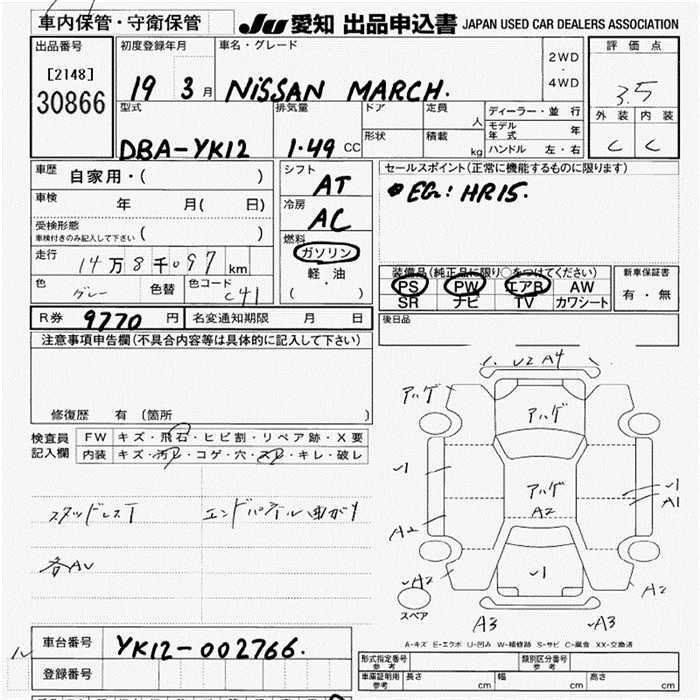 車内保管・守衛保管
JU 愛知 出品申込書 JAPAN USED CAR DEALERS ASSOCIATION
出品番号
[2148]
30866
初度登録年月
19 3 月
車名・グレード
NiSSAN MARCH.
2WD
・
4WD
評価点
3.5
外装 内装
C C
型式
DBA-YK12
排気量
1.49 CC
ドア
形状
定員
人
積載
kg
ディーラー・並行
モデル年式 年
ハンドル 左・右
車歴
自家用・( )
車検
年 月( 日)
受検形態
車検付きのみ記入して下さい ( )
走行
14万8千097 km
色
グレー
色替
色コード
C41
シフト
AT
冷房
AC
燃料
ガソリン
軽・油
( )
セールスポイント(正常に機能するものに限ります)
EG: HR15.
装備品(純正品に限り○をつけてください)
PS PW エアB AW
SR ナビ TV カワシート
新車保証書
有・無
R券 9770 円
名変通知期限 月 日
後日品
注意事項申告欄(不具合内容等は具体的に記入して下さい)
修復歴 有 (箇所 )
検査員
記入欄
FW キズ・飛石・ヒビ割・リペア跡・X要
内装 キズ・汚レ・コゲ・穴・スレ・キレ・破レ
スタッドレスT
エンドパネル曲がり
各AU
U2 A4
アハゲ
アハゲ
アハゲ
A2
✓1
✓1
A1
A2
A2
✓1
A2
スペア
A3
A3
A-キズ E-エクボ U-凹み W-補修跡 S-サビ C-腐食 XX-交換済
車台番号
YK12-002766.
登録番号
形式指定番号
参考
類別区分番号
参考
車庫証明用
参考
長さ cm
幅 cm
高さ cm